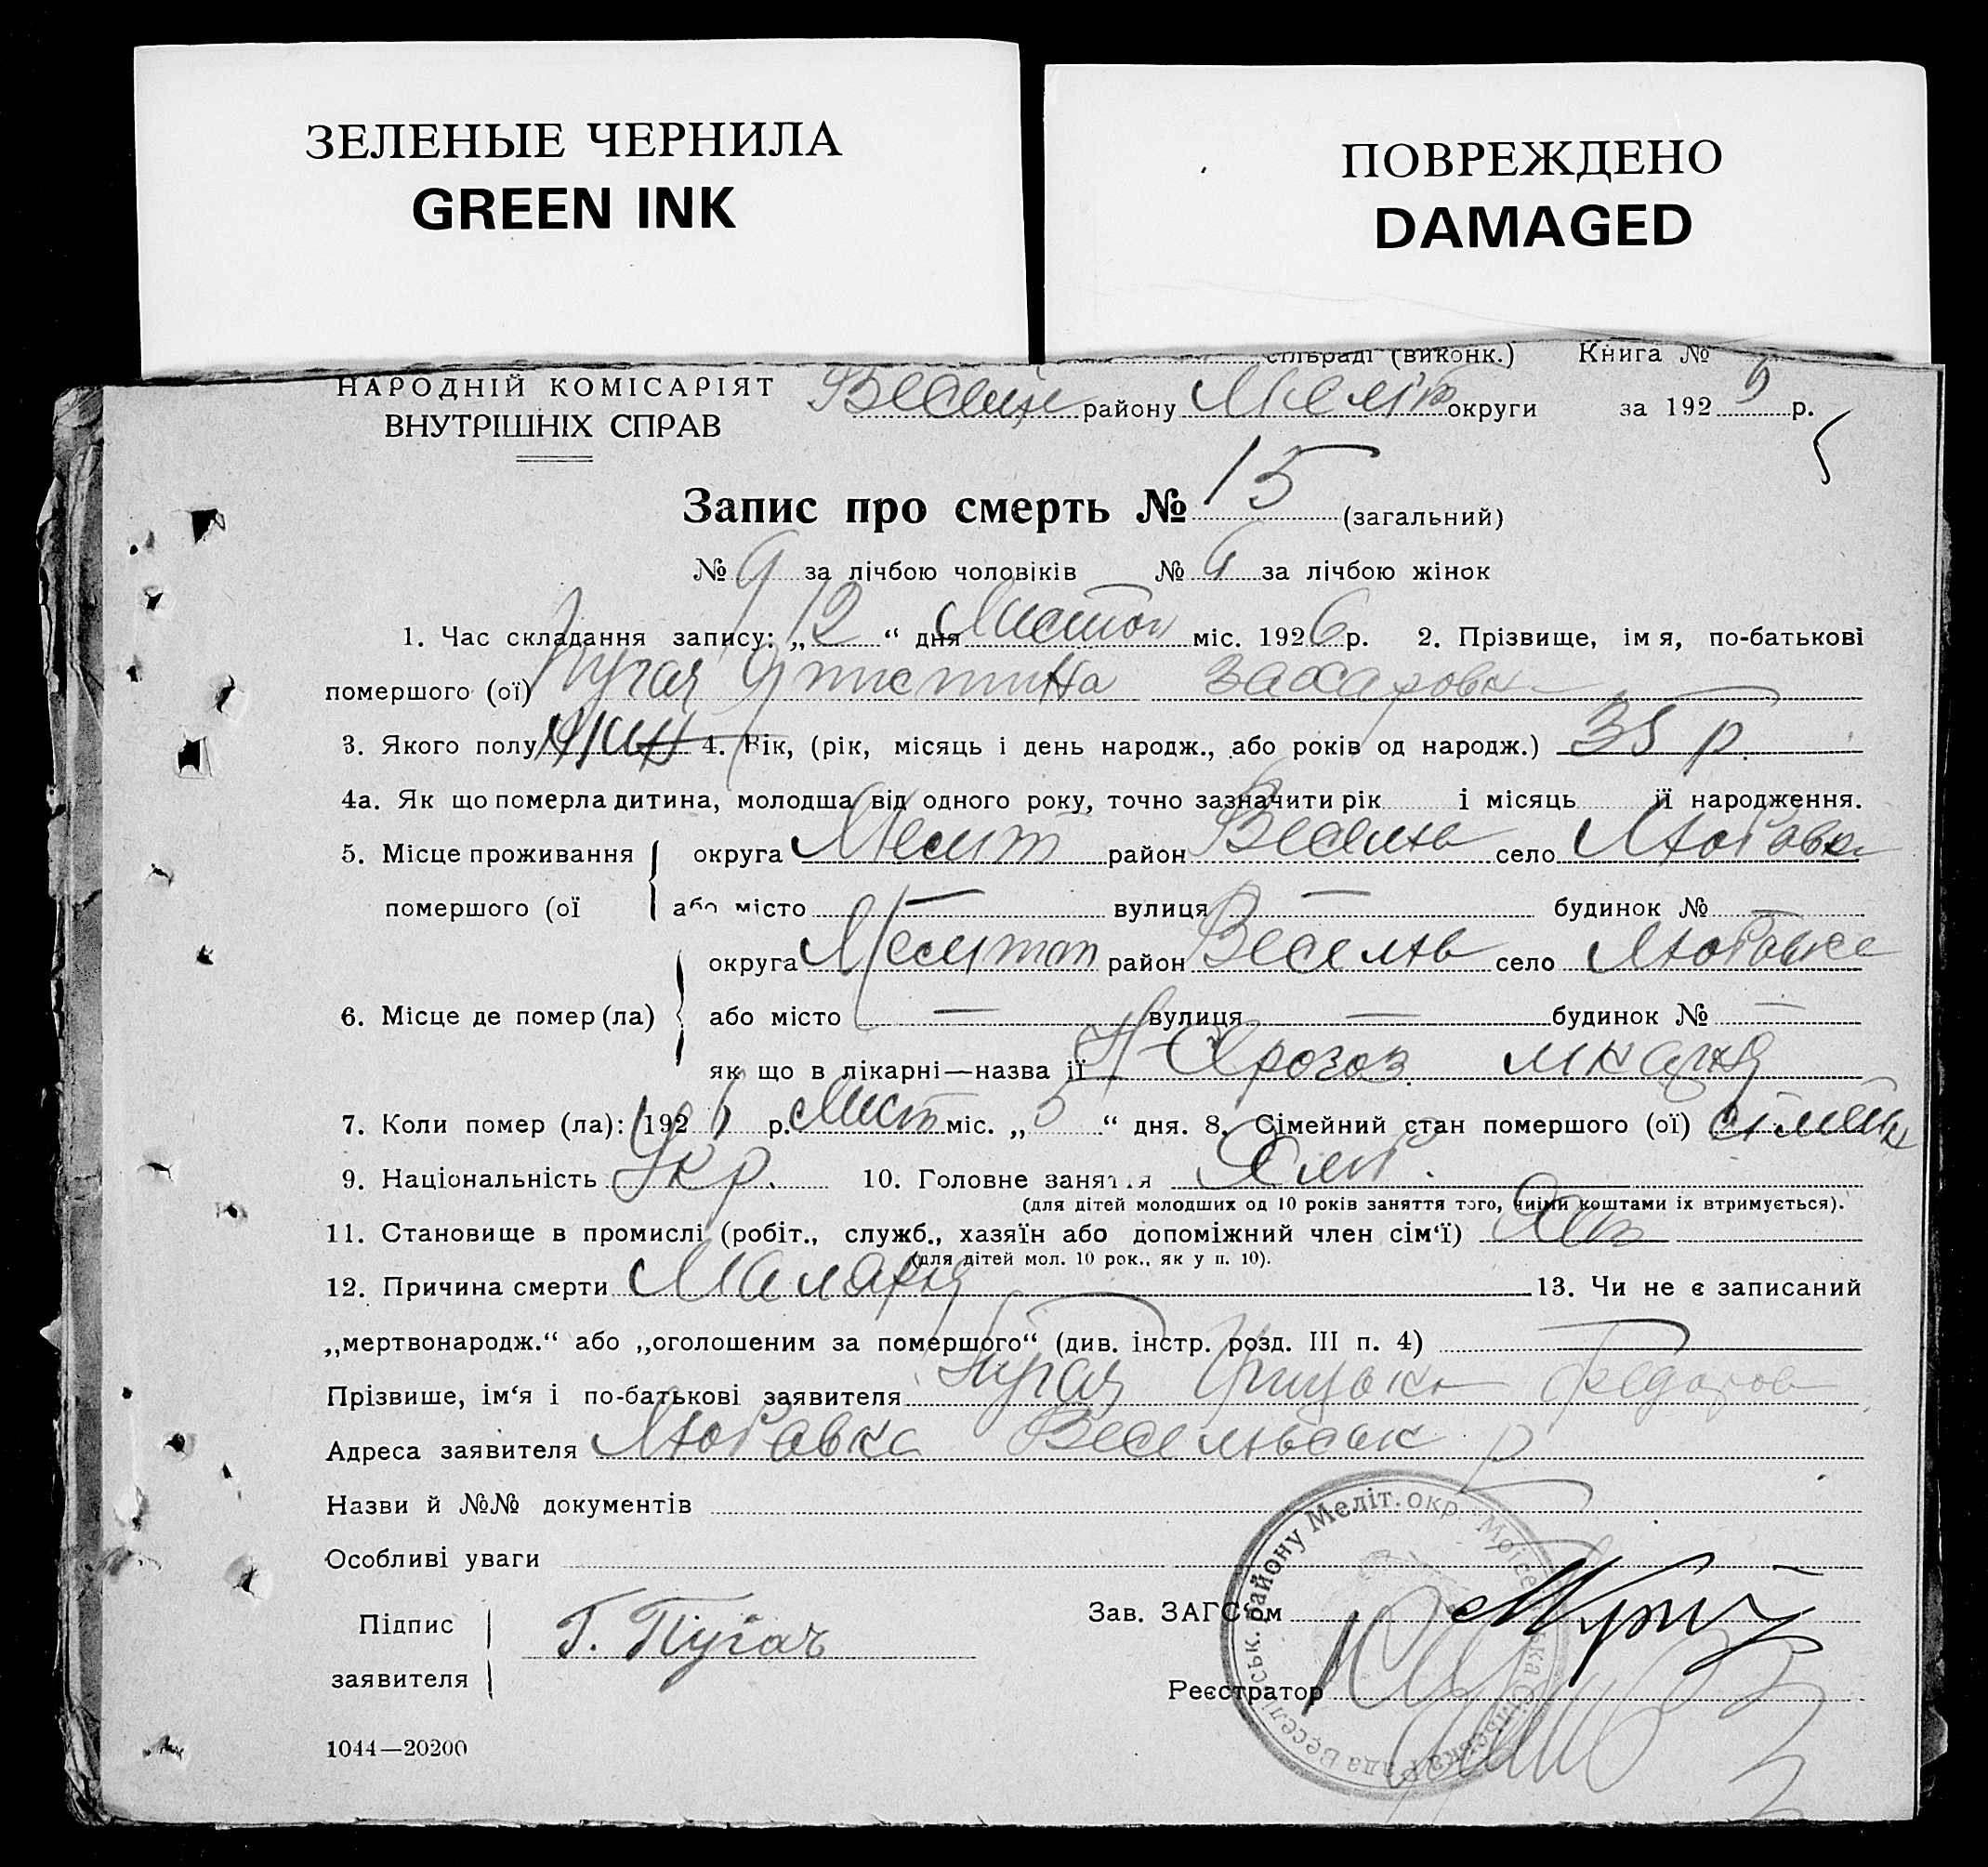 ЗЕЛЕНЫЕ ЧЕРНИЛА
GREEN INK
ПОВРЕЖДЕНО
DAMAGED
сільраді (виконк.) Книга №
НАРОДНІЙ КОМІСАРІЯТ
ВНУТРІШНІХ СПРАВ
району Меліт округи за 192 р.
Запис про смерть № 15 (загальний)
№ 9 за лічбою чоловіків № 6 за лічбою жінок
1. Час складання запису: „12“ дня Листоп міс. 1926 р. 2. Прізвище, ім я, по-батькові
помершого (ої) Пугач Христина Захаровн
3. Якого полу жін 4. Вік, (рік, місяць і день народж., або років од народж.) 35 р.
4а. Як що померла дитина, молодша від одного року, точно зазначити рік і місяць її народження.
5. Місце проживання
помершого (ої
округа Меліт район Веселів село Любовка
або місто — вулиця — будинок № —
6. Місце де помер (ла)
округа Меліт район Веселів село Любовка
або місто — вулиця — будинок № —
як що в лікарні—назва її
7. Коли помер (ла): 1926 р. Лист міс. „5“ дня. 8. Сімейний стан помершого (ої) сімейн
9. Національність Укр. 10. Головне заняття Хліб.
(для дітей молодших од 10 років заняття того, чиїми коштами їх втримується).
11. Становище в промислі (робіт., служб., хазяїн або допоміжний член сім‘ї)
(для дітей мол. 10 рок., як у п. 10).
12. Причина смерти Малярія 13. Чи не є записаний
„мертвонародж.“ або „оголошеним за помершого“ (див. інстр. розд. III п. 4)
Прізвише, ім‘я і по-батькові заявителя Пугач Грицько Федоров
Адреса заявителя Любовка Веселівськ р
Назви й №№ документів
Особливі уваги
Підпис
заявителя
Г. Пугач
Зав. ЗАГС‘ом
Реєстратор
Рада Веселівськ. району Меліт. окр.
1044—20200